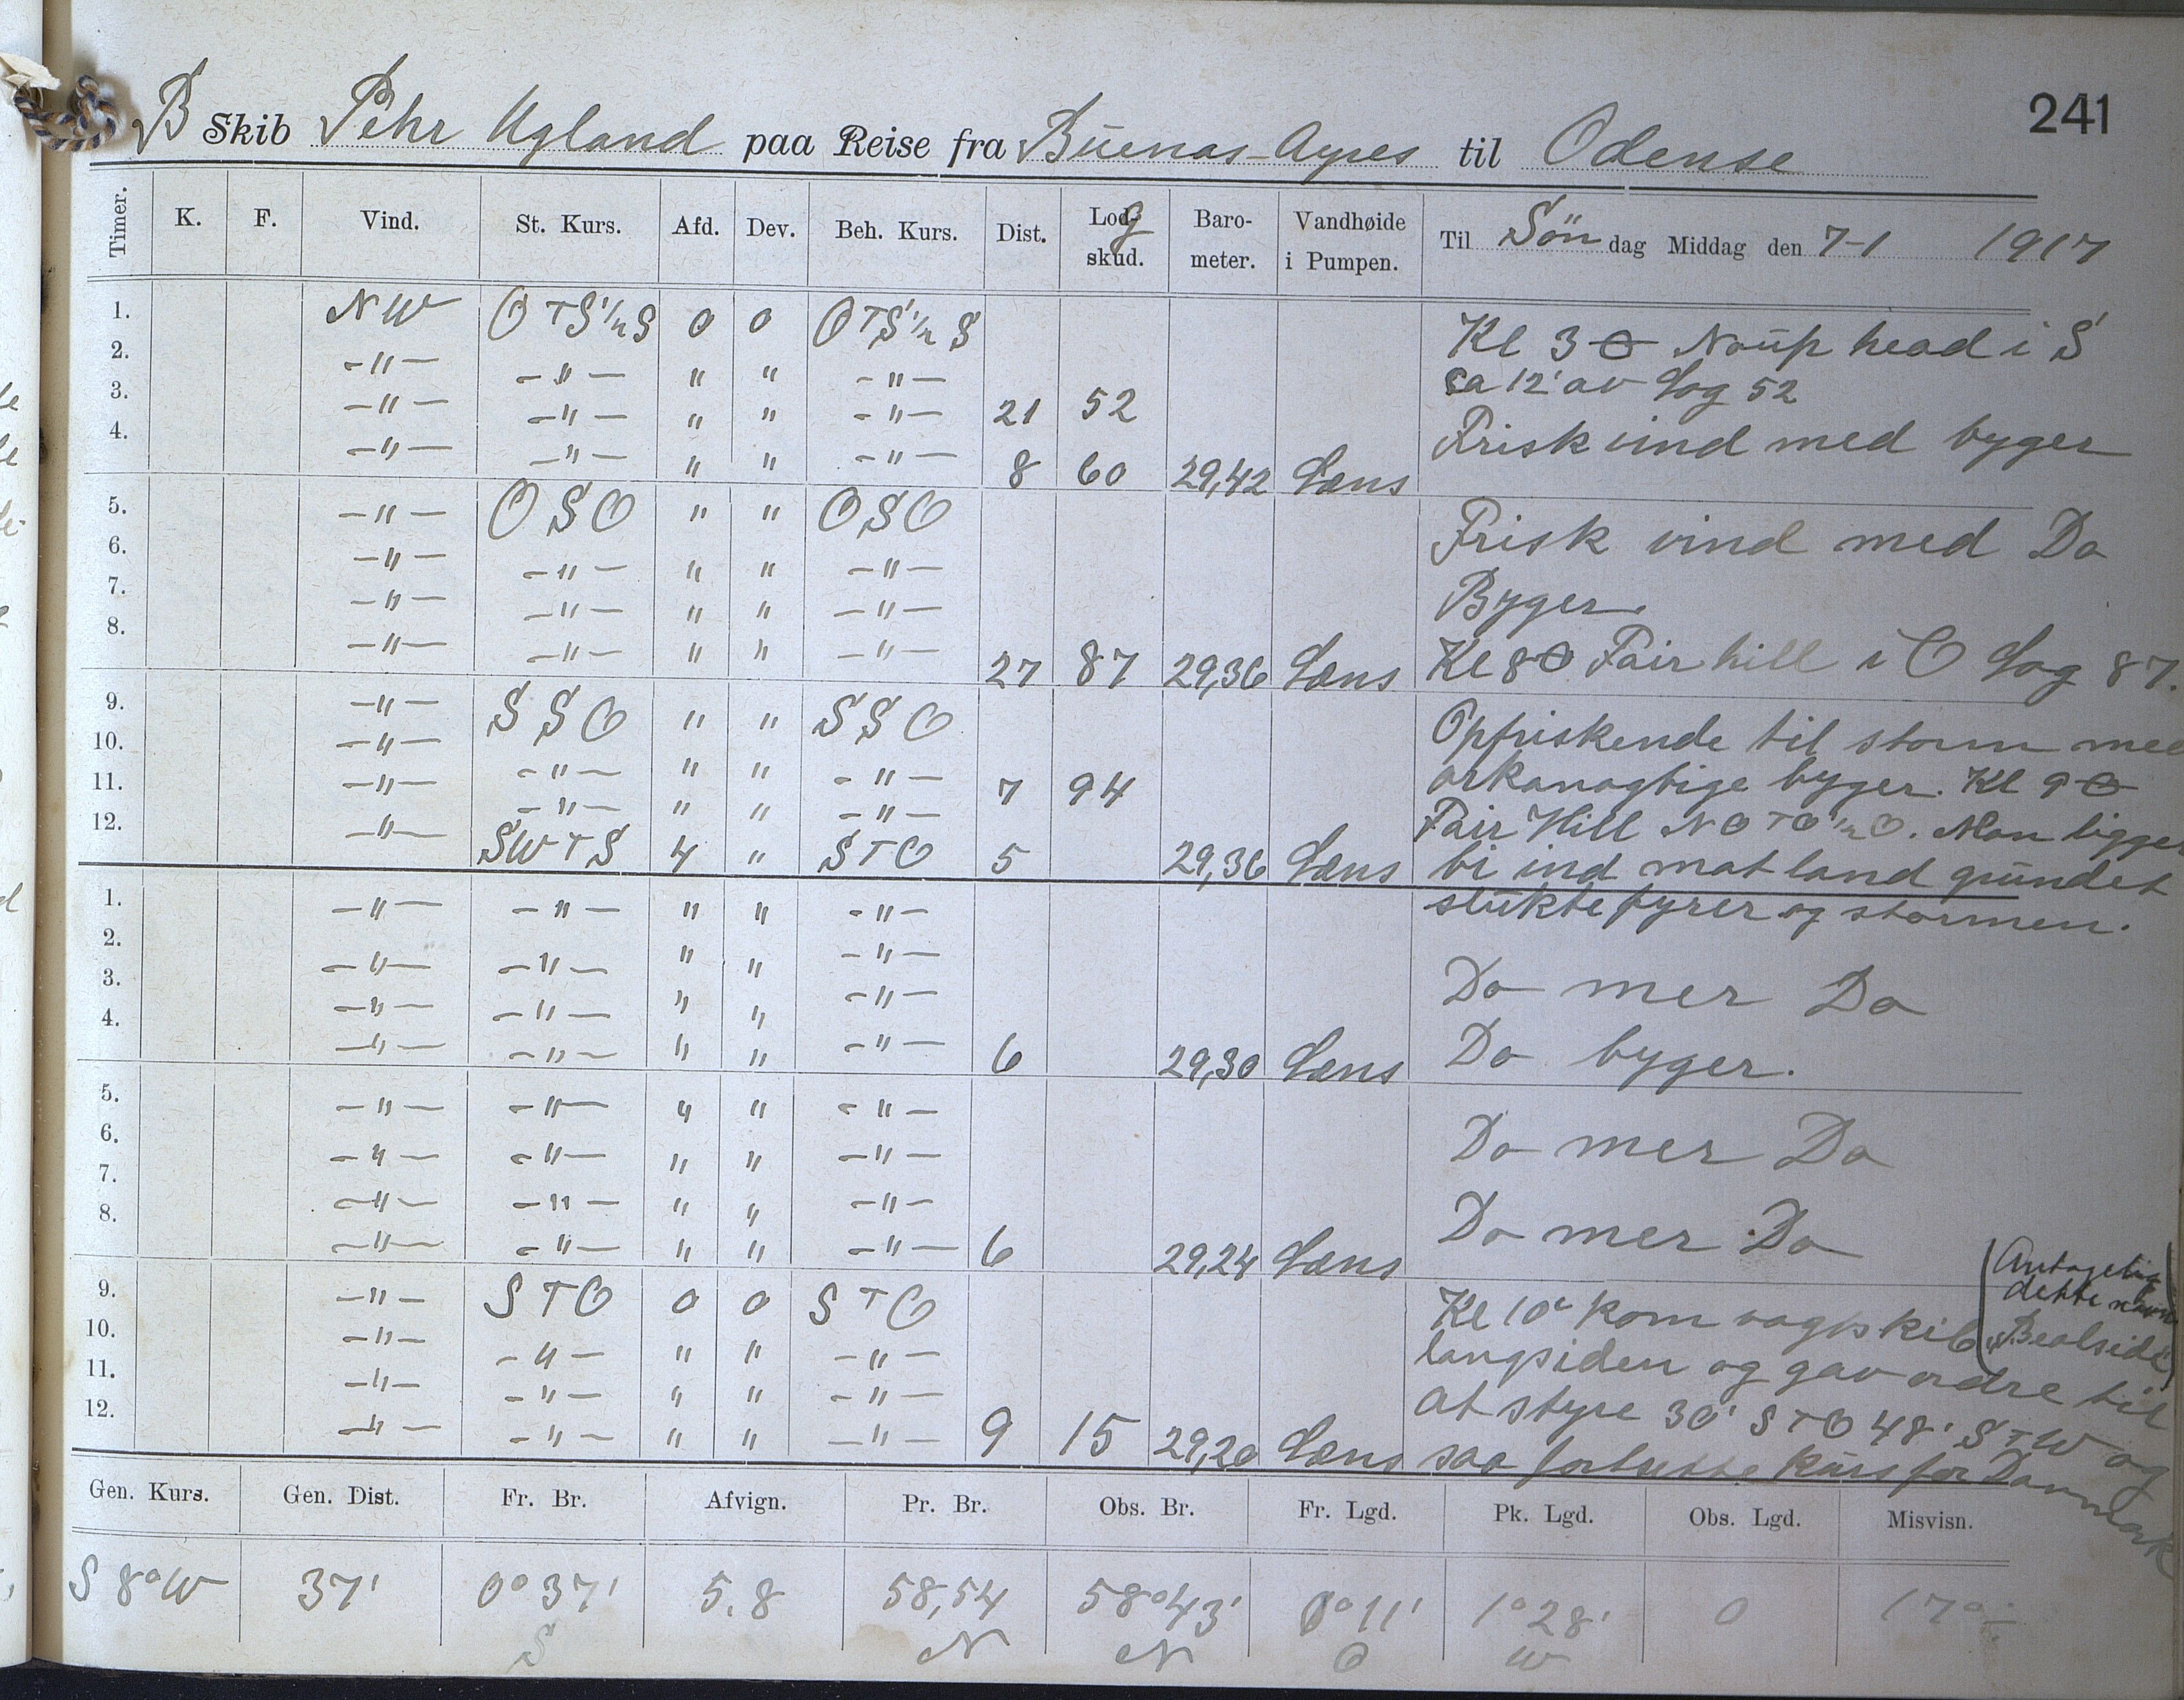 241
B Skib Pehr Ugland paa Reise fra Buenas-Ayres til Odense
Timer. K. F. Vind. St. Kurs. Afd. Dev. Beh. Kurs. Dist. Logskud. Barometer. Vandhøide i Pumpen. Til Søndag Middag den 7-1 1917
1. NW OTS½S 0 0 OTS½S Kl 30 Naup head i S
2. -"- -"- " " -"- ca 12' av Log 52
3. -"- -"- " " -"- 21 52 Frisk vind med byger
4. -"- -"- " " -"- 8 60 29,42 Læns
5. -"- OSO " " OSO Frisk vind med Do
6. -"- -"- " " -"-
7. -"- -"- " " -"- Byger.
8. -"- -"- " " -"- 27 87 29,36 Læns Kl 80 Fair hill i O Log 87.
9. -"- SSO " " SSO Opfriskende til storm med
10. -"- -"- " " -"- 7 94 orkanagtige byger. Kl 90
11. -"- -"- " " -"- Fair Hill NOTO½O. Man ligger
12. -"- SWTS 4 " STO 5 29,36 Læns bi ind mot land grundet
1. -"- -"- " " -"- slukte fyrer og stormen.
2. -"- -"- " " -"-
3. -"- -"- " " -"- Do mer Do
4. -"- -"- " " -"- 6 29,30 Læns Do byger.
5. -"- -"- " " -"-
6. -"- -"- " " -"- Do mer Do
7. -"- -"- " " -"-
8. -"- -"- " " -"- 6 29,24 Læns Do mer Do
(Antagelig dette navn "Bealside")
9. -"- STO 0 0 STO Kl 10 kom vagtskib
10. -"- -"- " " -"- langsiden og gav ordre til
11. -"- -"- " " -"- at styre 30' STO 48' STW og
12. -"- -"- " " -"- 9 15 29,20 Læns saa fortsætte kurs for Danmark
Gen. Kurs. Gen. Dist. Fr. Br. Afvign. Pr. Br. Obs. Br. Fr. Lgd. Pk. Lgd. Obs. Lgd. Misvisn.
S 8° W 37' 0° 37' S 5,8 58,54 N 58° 43' N 0° 11' O 1° 28' W 0 17°